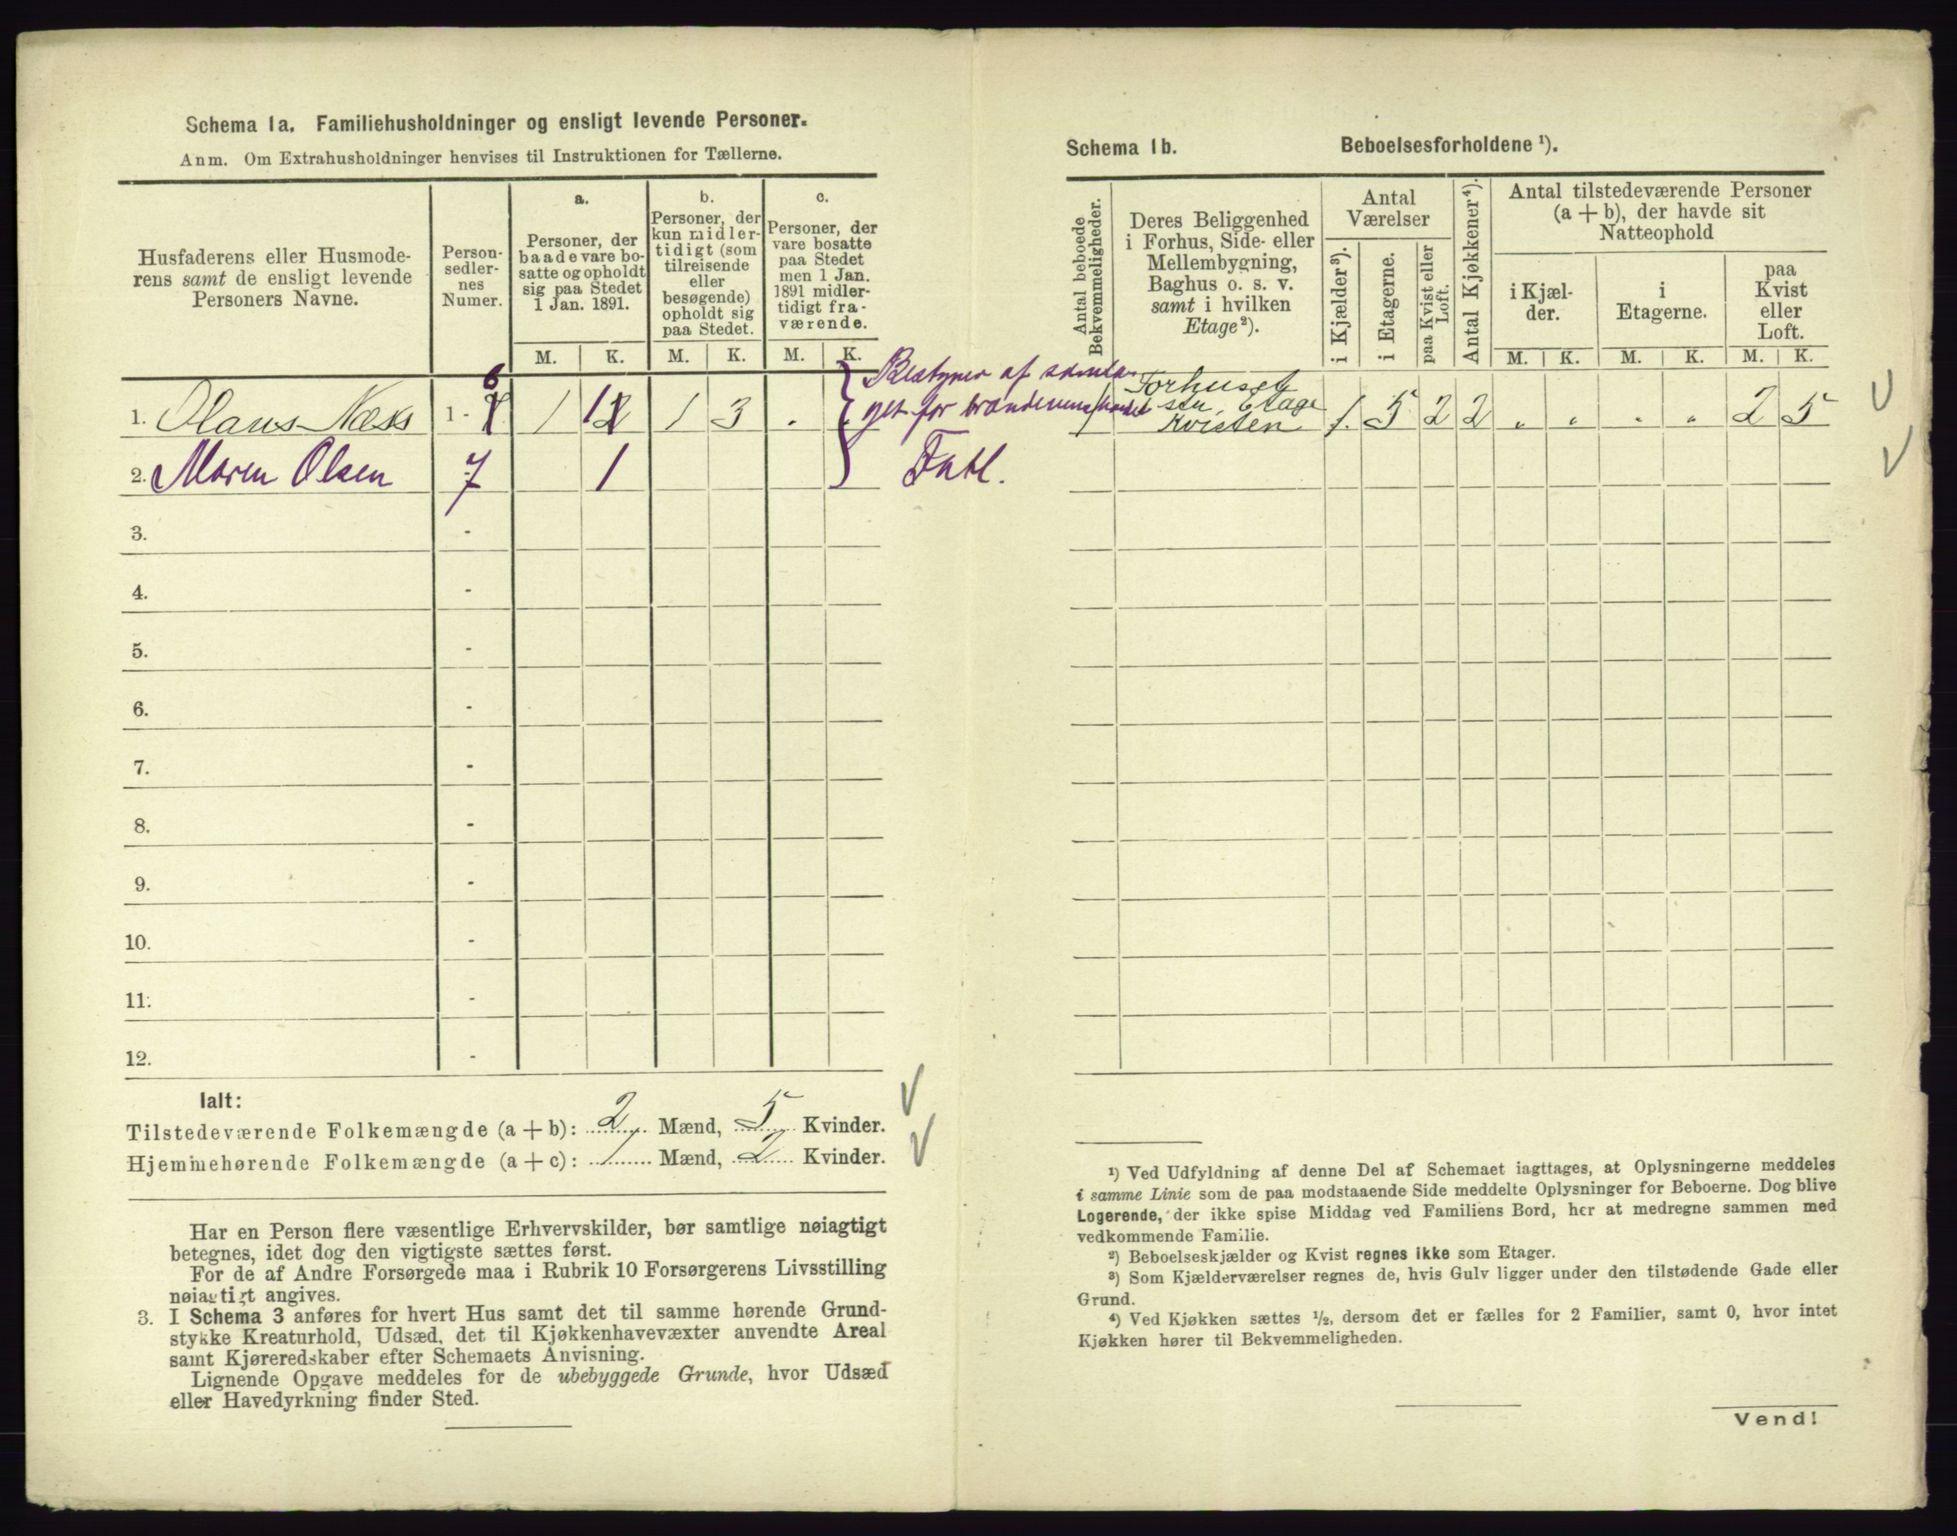 Schema 1a. Familiehusholdninger og ensligt levende Personer.
Anm. Om Extrahusholdninger henvises til Instruktionen for Tællerne.
Husfaderens eller Husmode-
rens samt de ensligt levende
Personers Navne.
Person-
sedler-
nes
Numer.
a.
Personer, der
baade vare bo-
satte og opholdt
sig paa Stedet
1 Jan. 1891.
b.
Personer, der
kun midler-
tidigt (som
tilreisende
eller
besøgende)
opholdt sig
paa Stedet.
c.
Personer, der
vare bosatte
paa Stedet
men 1 Jan.
1891 midler-
tidigt fra-
værende.
M. K. M. K. M. K.
1. Olaus Næss 1 - 6 1 1 1 3 .
2. Maren Olsen 7 1
Bestyrer af
Forhuset
Etage
Kvisten
1. 5 2 2 „ „ „ „ 2 5
3. -
4. -
5. -
6. -
7. -
8. -
9. -
10. -
11. -
12. -
Ialt:
Tilstedeværende Folkemængde (a + b): 2 Mænd, 5 Kvinder.
Hjemmehørende Folkemængde (a + c): 1 Mænd, 2 Kvinder.
Har en Person flere væsentlige Erhvervskilder, bør samtlige nøiagtigt
betegnes, idet dog den vigtigste sættes først.
For de af Andre Forsørgede maa i Rubrik 10 Forsørgerens Livsstilling
nøiagtigt angives.
3. I Schema 3 anføres for hvert Hus samt det til samme hørende Grund-
stykke Kreaturhold, Udsæd, det til Kjøkkenhavevæxter anvendte Areal
samt Kjøreredskaber efter Schemaets Anvisning.
Lignende Opgave meddeles for de ubebyggede Grunde, hvor Udsæd
eller Havedyrkning finder Sted.
Schema 1b. Beboelsesforholdene ¹).
Antal beboede
Bekvemmeligheder.
Deres Beliggenhed
i Forhus, Side- eller
Mellembygning,
Baghus o. s. v.
samt i hvilken
Etage²).
Antal
Værelser
i Kjælder³).
i Etagerne.
paa Kvist eller
Loft.
Antal Kjøkkener⁴).
Antal tilstedeværende Personer
(a + b), der havde sit
Natteophold
i Kjæl-
der.
i
Etagerne.
paa
Kvist
eller
Loft.
M. K. M. K. M. K.
¹) Ved Udfyldning af denne Del af Schemaet iagttages, at Oplysningerne meddeles
i samme Linie som de paa modstaaende Side meddelte Oplysninger for Beboerne. Dog blive
Logerende, der ikke spise Middag ved Familiens Bord, her at medregne sammen med
vedkommende Familie.
²) Beboelseskjælder og Kvist regnes ikke som Etager.
³) Som Kjælderværelser regnes de, hvis Gulv ligger under den tilstødende Gade eller
Grund.
⁴) Ved Kjøkken sættes ½, dersom det er fælles for 2 Familier, samt 0, hvor intet
Kjøkken hører til Bekvemmeligheden.
Vend!